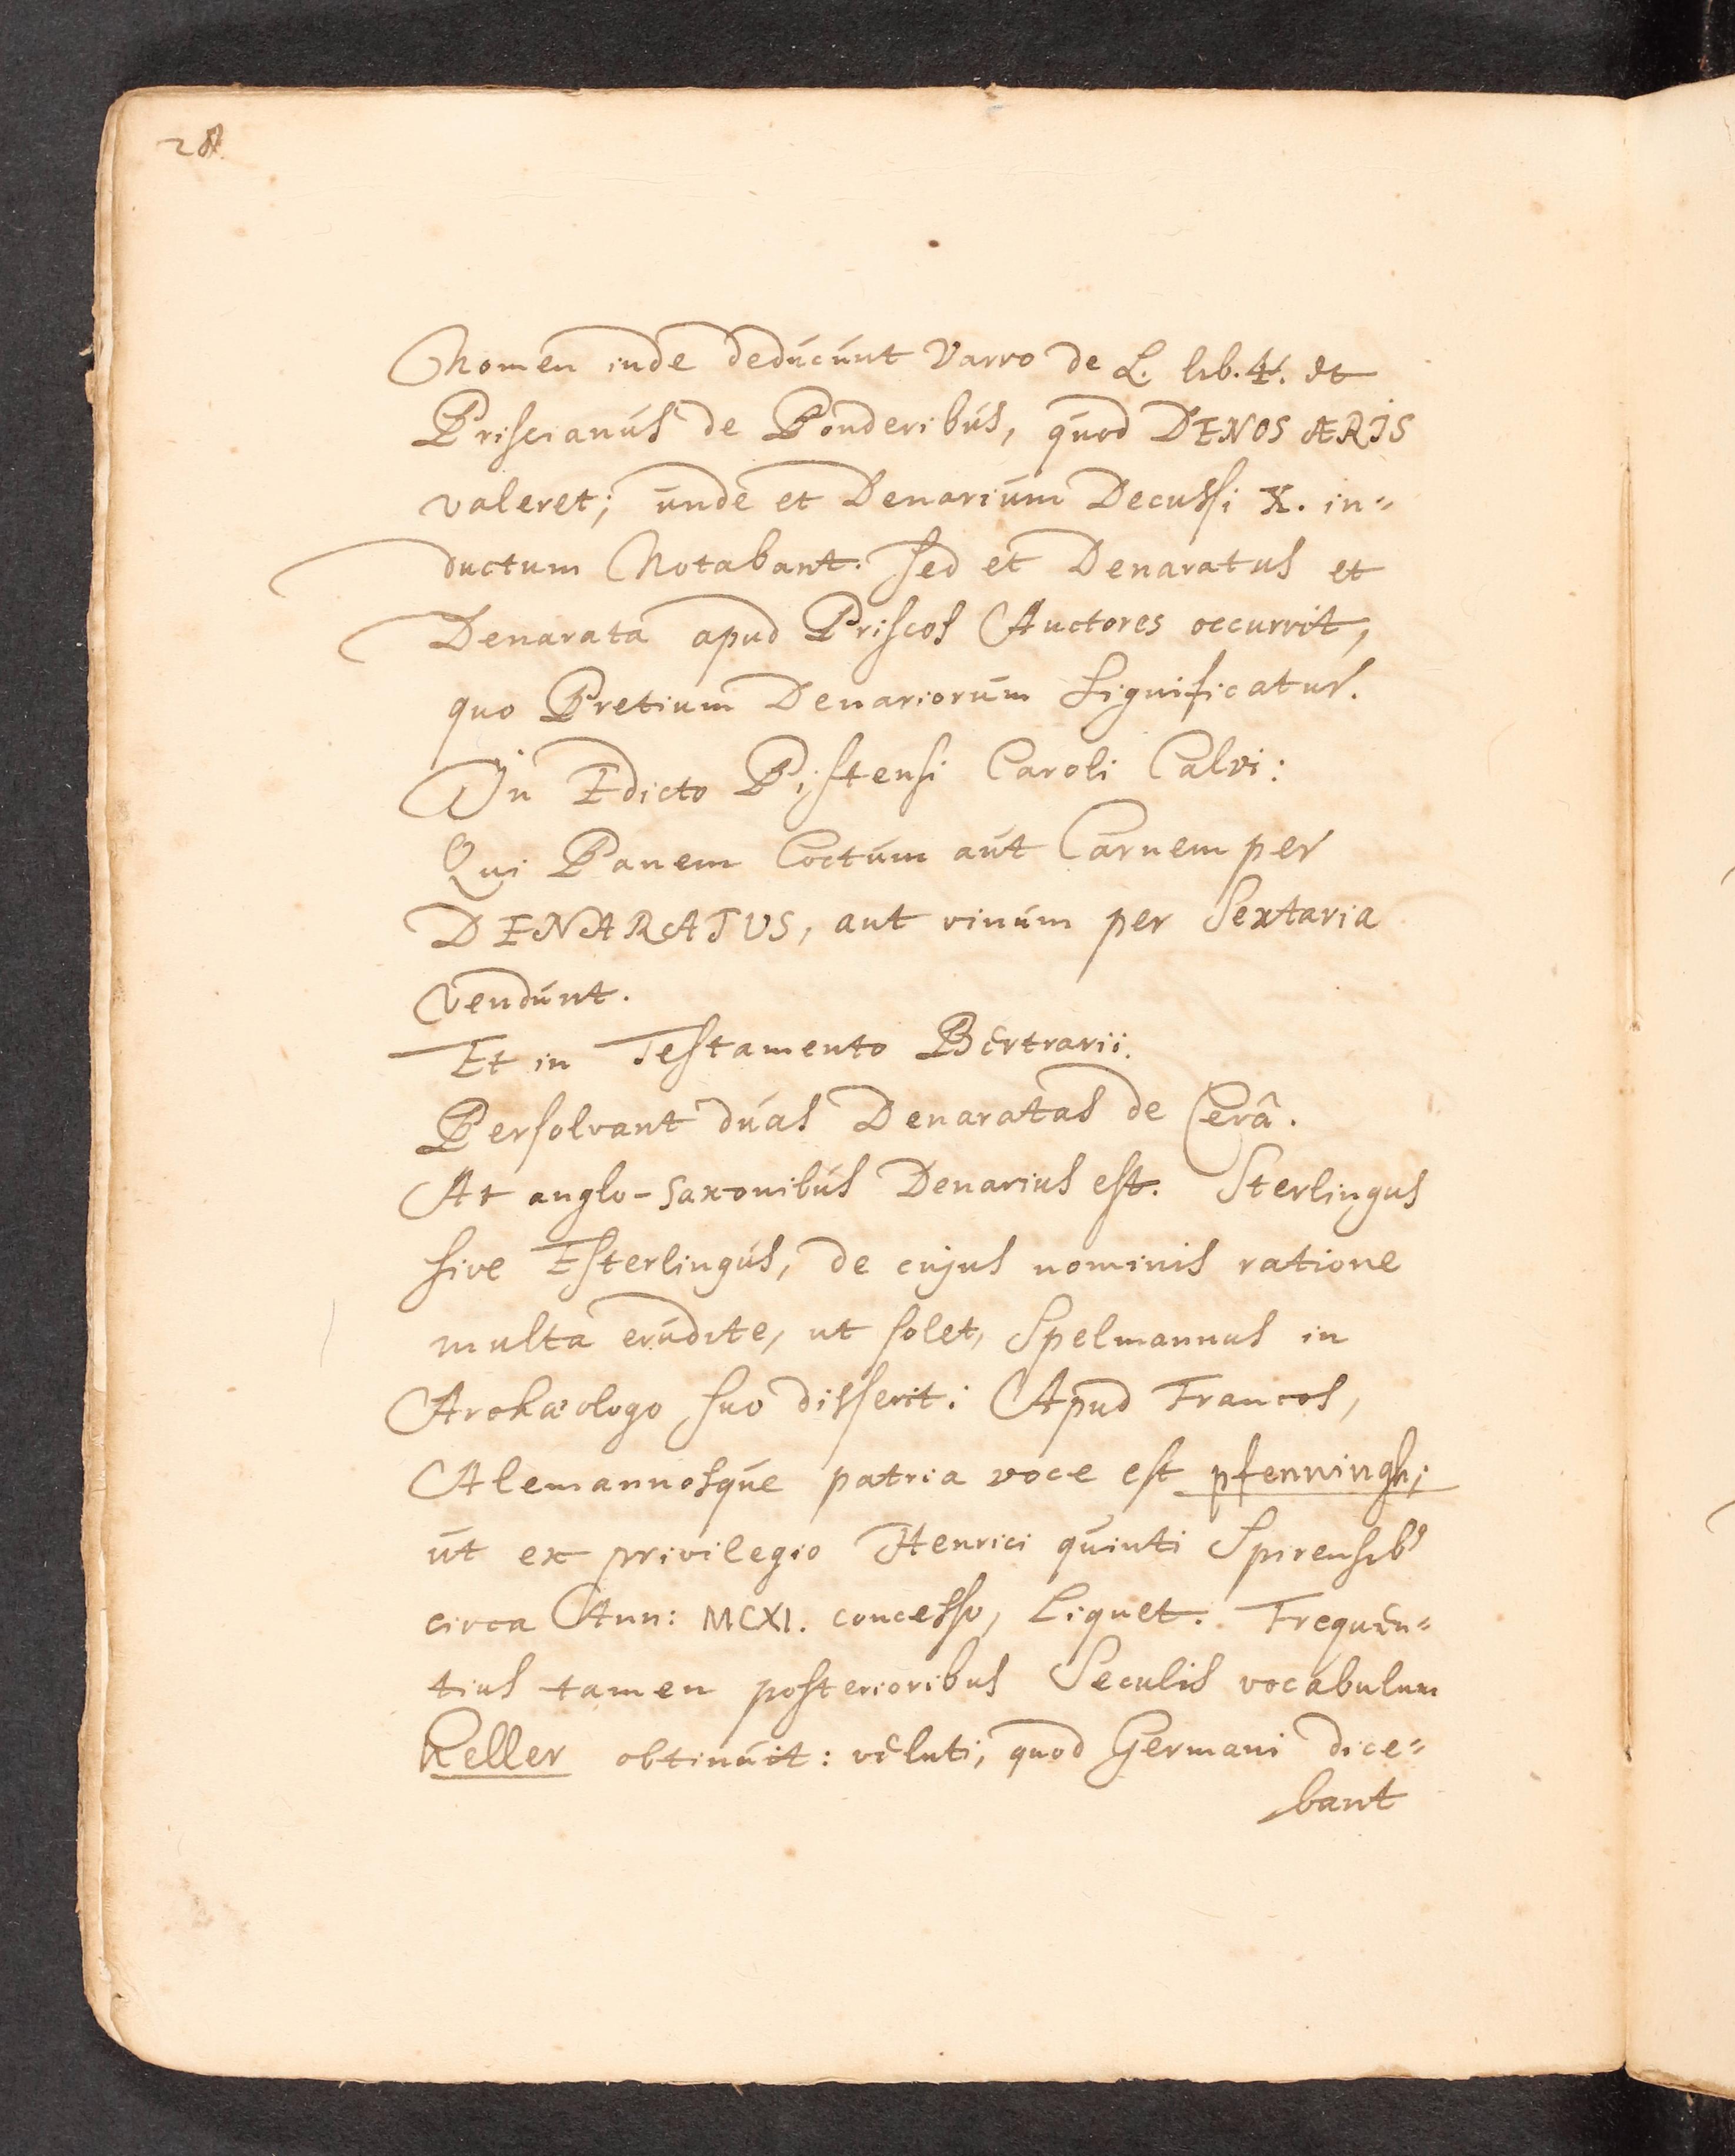 28
Nomen inde dedúcúnt Varro de L. lib. 4. et
Priscianús de Ponderibús, qúod DENOS ÆRIS
valeret; únde et Denariúm Decussi X. in=
ductum Notabant. Sed et Denaratus et
Denarata apud Priscos Auctores occurrit,
quo Pretium Denariorúm Significatur.
In Edicto Pistensi Caroli Calvi:
Qui Panem Coctúm aút Carnem per
DENARATUS, aut vinúm per Sextaria
vendúnt.
Et in Testamento Bertrarii.
Persolvant dúas Denaratas de Cerâ.
At anglo-saxonibús Denarius est. Sterlingus
sive Esterlingús, de cujus nominis ratione
multa erúdite, ut solet, Spelmannus in
Archæologo suo disserit: Apud Francos,
Alemannosqúe patria voce est pfenningh;
út ex privilegio Henrici qúinti Spirensib9
circa Ann: MCXI. concesso, Liquet. Frequen=
tius tamen posterioribus Seculis vocabulum
heller obtinúit: veluti, quod Germani dice=
bant